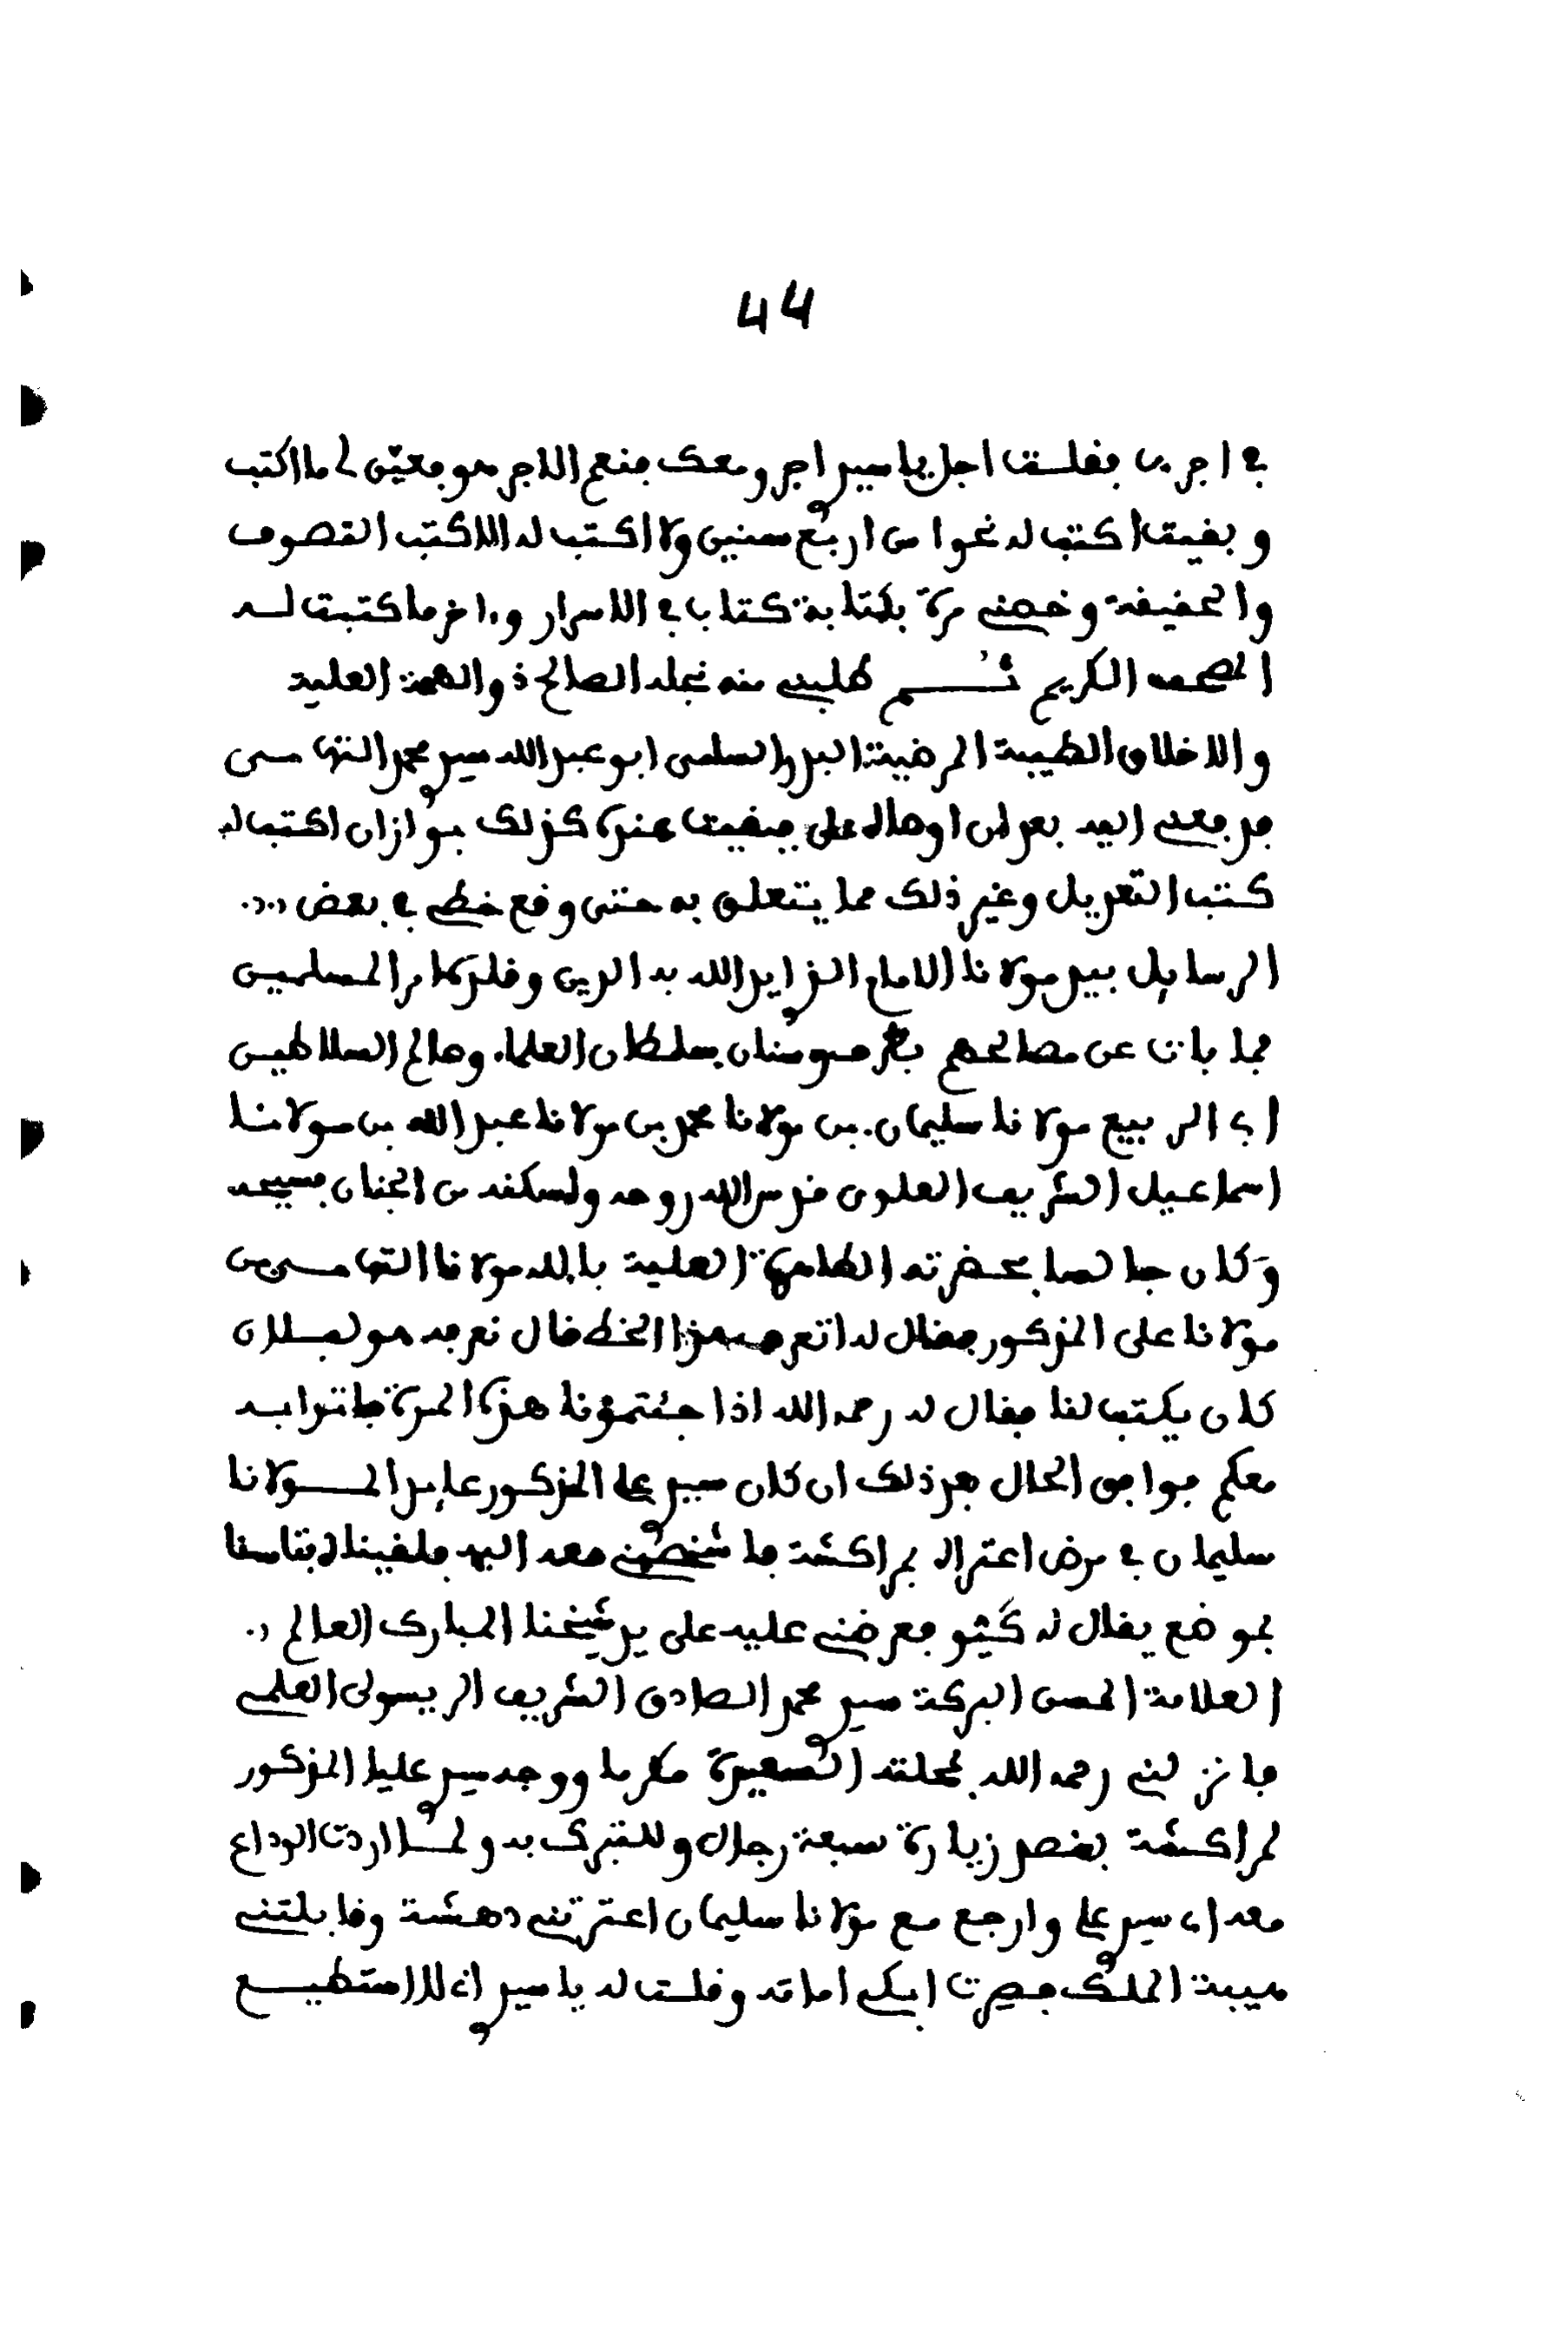 44
في اجرى فقلت اجل يا سيدي اجر ومعك فنعم الاجر هو فعين لي ما اكتب
وبقيت اكتب له نحوا من اربع سنين ولا اكتب له الا كتب التصوف
والحقيقة وخصني مرة بكتابة كتاب في الاسرار وءاخر ما كتبت له
المصحف الكريم ثم طلبني منه نجله الصالح ذو الهمة العلية
والاخلاق الطيبة المرضية البدر السامي ابو عبد الله سيدي محمد التهامي
فدفعني اليه بعد ان اوصاه علي فبقيت عنده كذلك بوازان اكتب له
كتب التعديل وغير ذلك مما يتعلق به حتى وقع خطي في بعض
الرسايل بيد مولانا الامام الذي ايد الله به الدين وقلده امر المسلمين
فما بات عن مصالحهم بطرف وسنان سلطان العلماء وعالم السلاطين
ابي الربيع مولانا سليمان بن مولانا محمد بن مولانا عبد الله بن مولانا
اسماعيل الشريف العلوي قدس الله روحه واسكنه من الجنان فسيحه
وكان جالسا بحضرته الطاهرة العلية بالله مولانا التهامي بن
مولانا علي المذكور فقال له اتعرف هذا الخط قال نعرفه هو لفلان
كان يكتب لنا فقال له رحمه الله اذا جئتمونا هذه المرة فاتوا به
معكم فوافق الحال بعد ذلك ان كان سيدي علي المذكور عايدا لمولانا
سليمان في مرض اعتراه بمراكشة فاشخصني معه اليه فلقيناه بتامسنا
بموضع يقال له كيو فعرضني عليه على يد شيخنا المبارك العالم
العلامة المحسن البركة سيدي محمد الصادق الشريف الريسولي العلمي
فانزلني رحمه الله بمحلته السعيدة مكرما ووجه سيدي عليا المذكور
لمراكشة بقصد زيارة سبعة رجال وللتبرك به ولما اردت الوداع
معه اي سيدي علي وارجع مع مولانا سليمان اعترتني دهشة وقابلتني
هيبة الملك فصرت ابكي امامه وقلت له يا سيدي اني لا استطيع